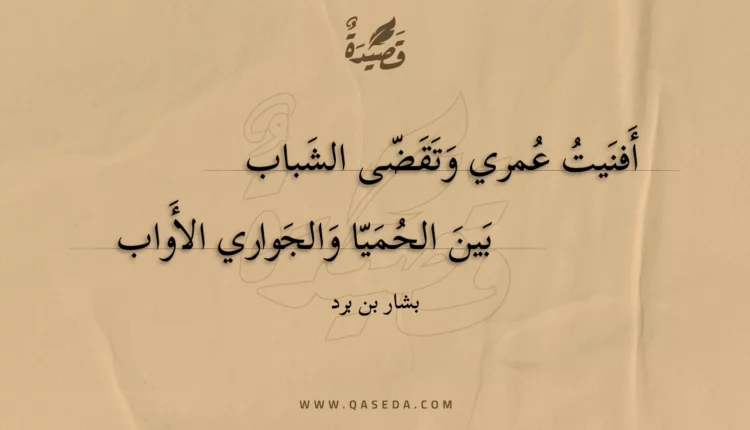 قَصِيدَةٌ
أَفنَيتُ عُمري وَتَقَضّى الشَباب
بَينَ الحُمَيّا وَالجَواري الأَواب
بشار بن برد
WWW.QASEDA.COM